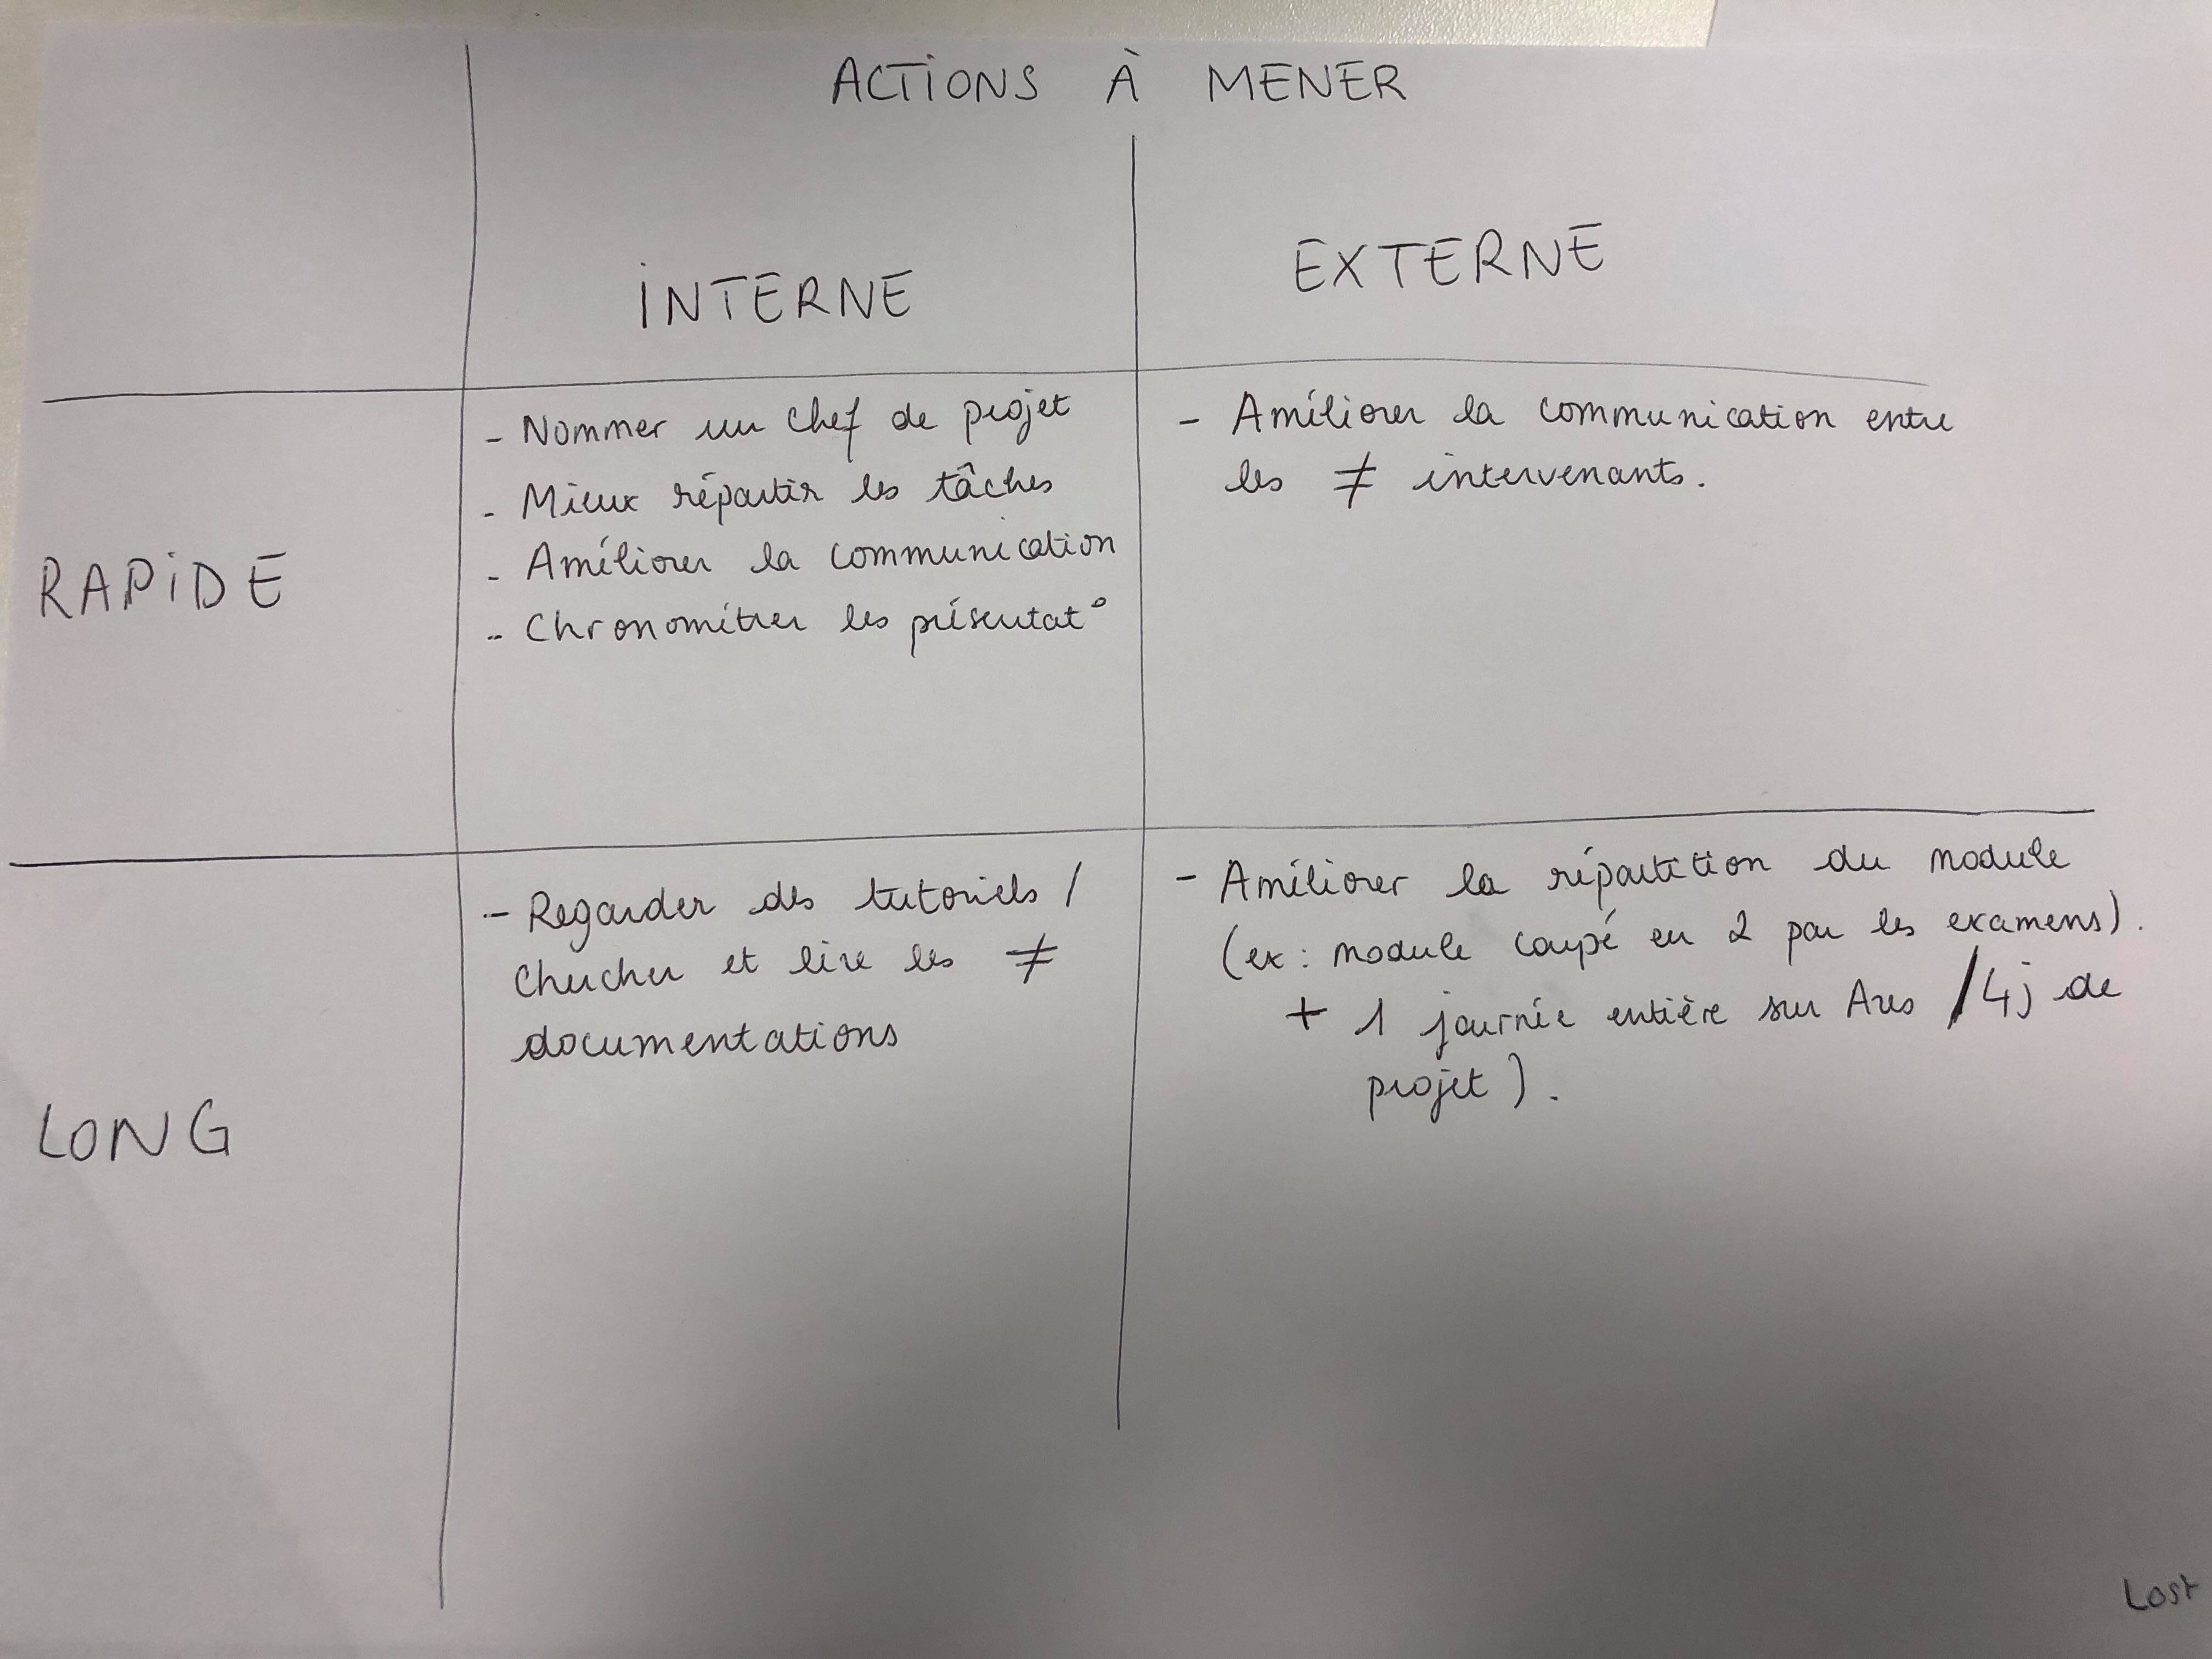 ACTIONS À MENER
INTERNE
EXTERNE
RAPIDE
- Nommer un chef de projet
- Mieux répartir les tâches
- Améliorer la communication
- Chronométrer les présentat°
- Améliorer la communication entre
les ≠ intervenants.
LONG
- Regarder des tutoriels /
chercher et lire les ≠
documentations
- Améliorer la répartition du module
(ex : module coupé en 2 par les examens).
+ 1 journée entière sur Ares /4j de
projet).
Lost